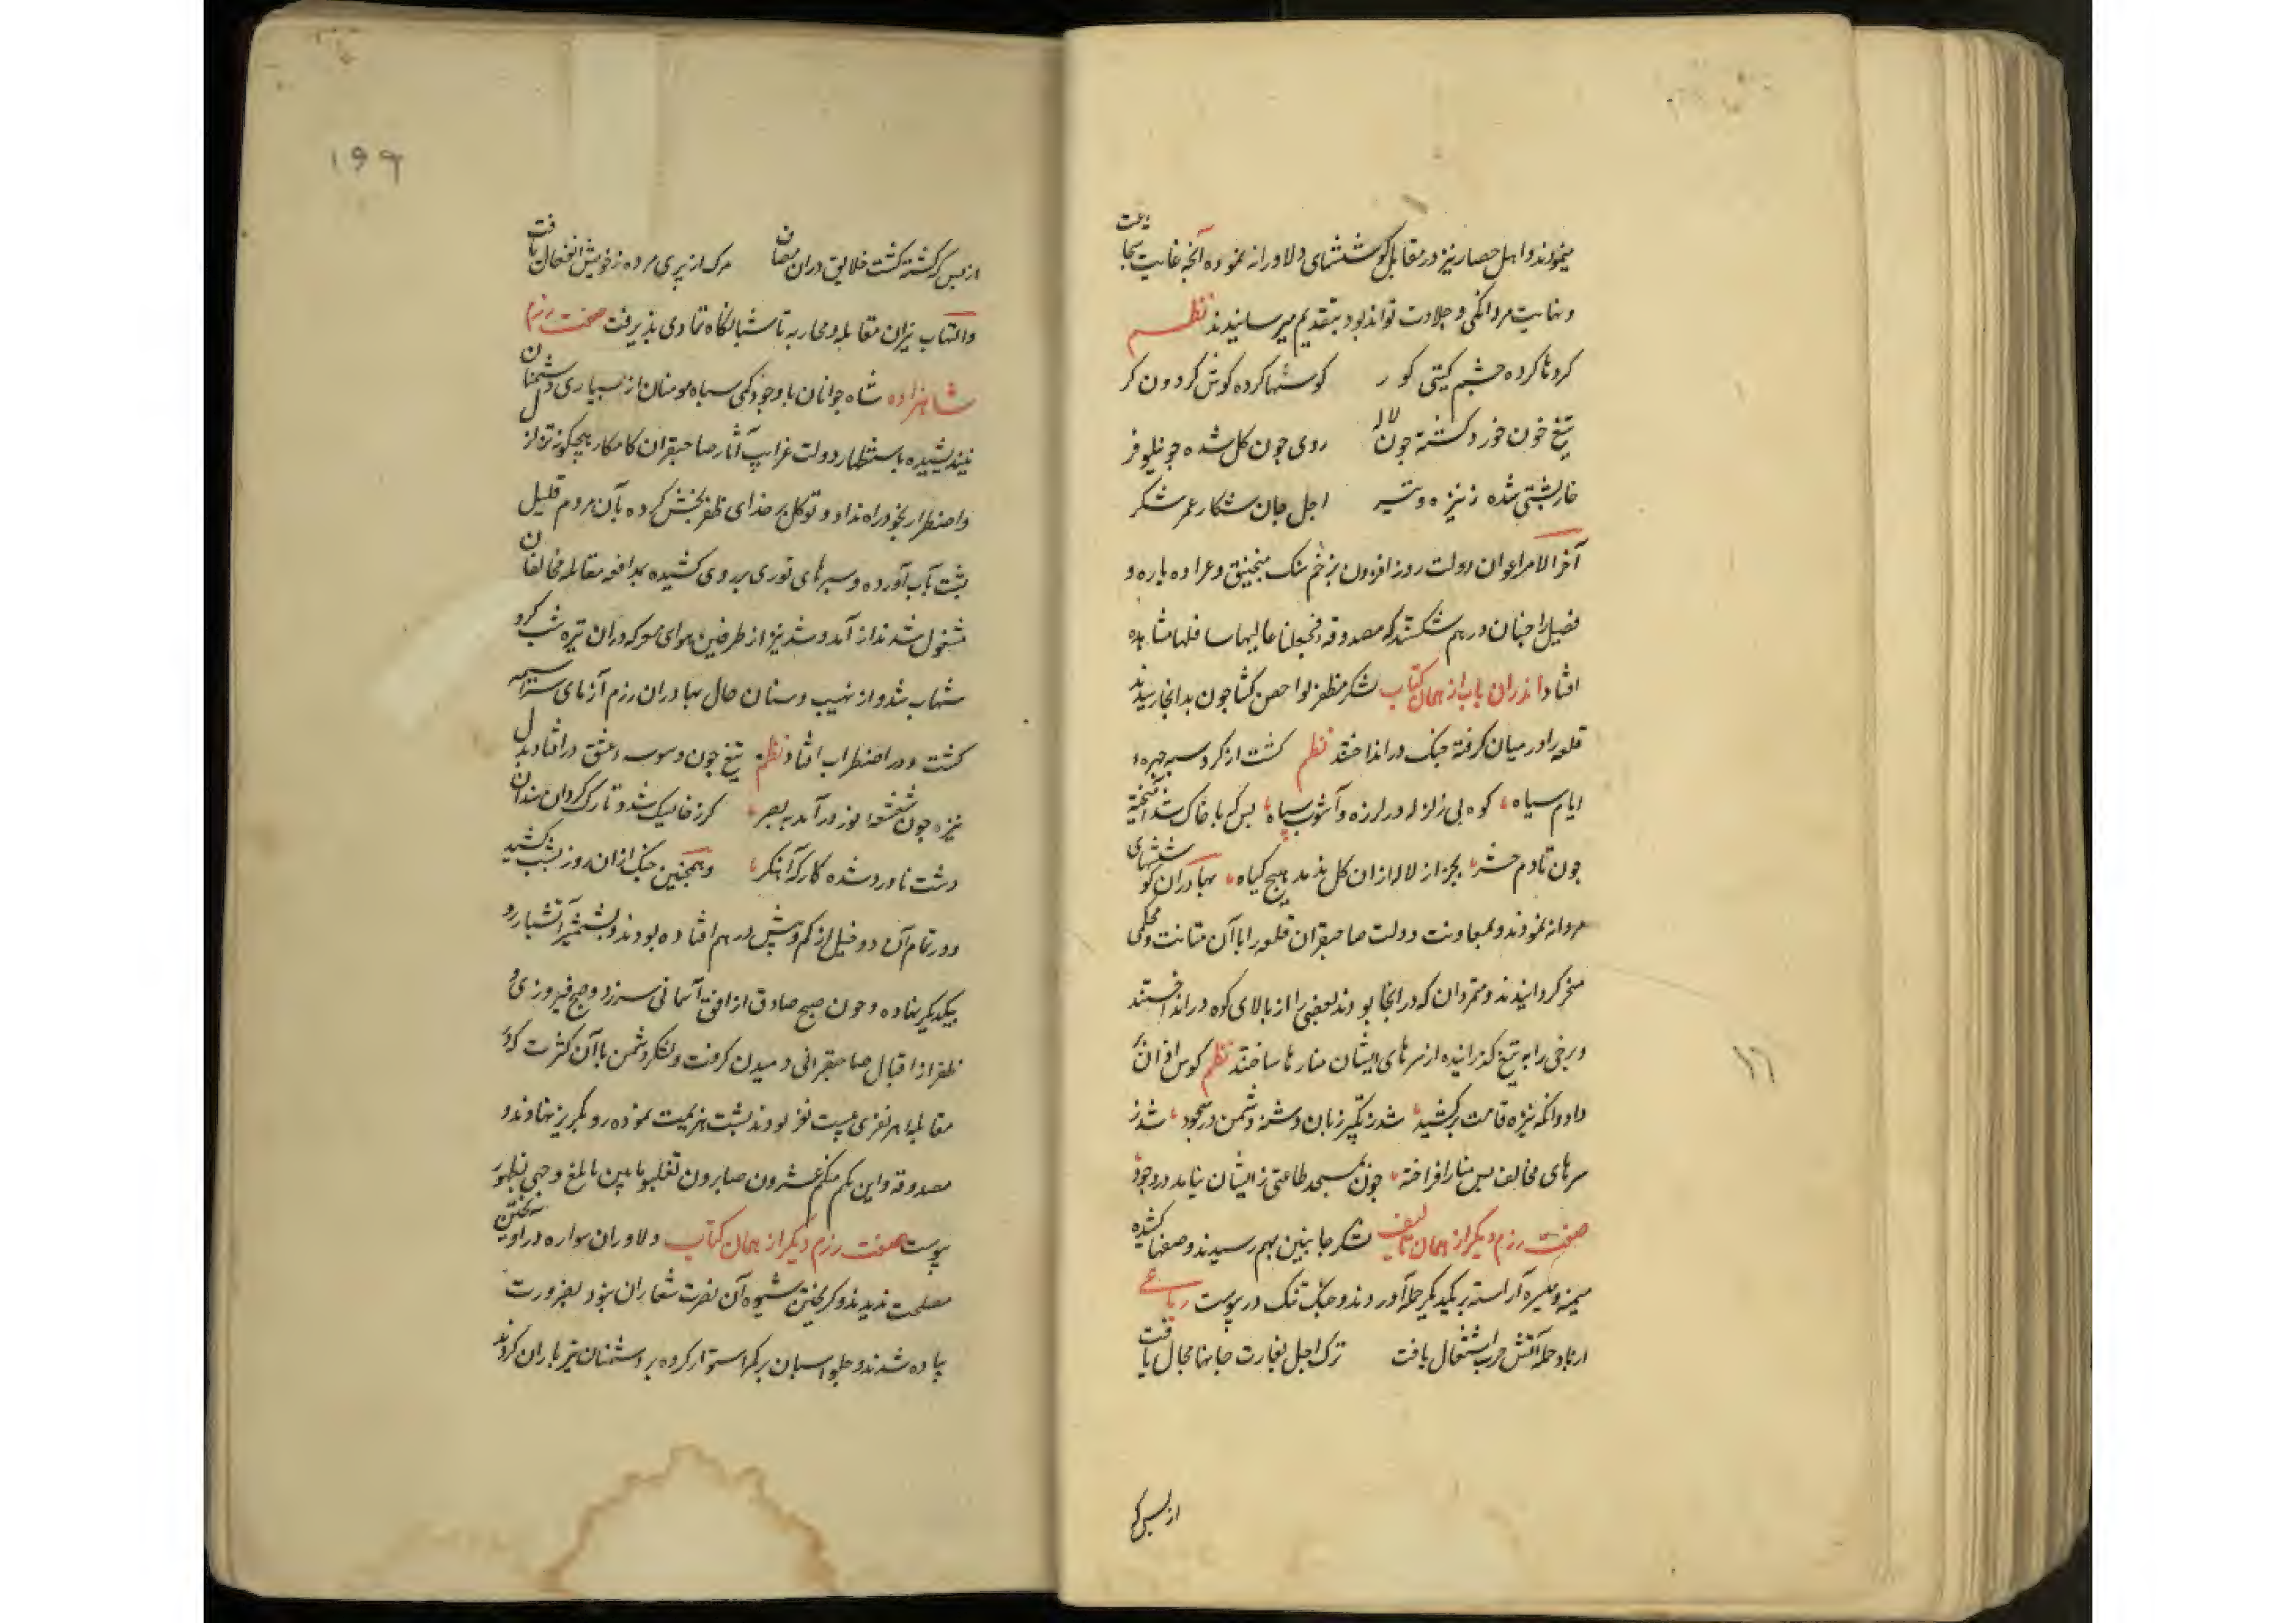 مینمودند و اهل حصار نیز در مقابل کوششهای دلاورانه نموده آنچه غایت شجاعت
و نهایت مردانکی و جلادت تواند بود بتقدیم میرسانیدند نظم
کردها کرده چشم کیتی کور کوسها کرده کوش کردون کر
تیغ خون خورد کشته چون لاله روی چون کل شده چو نیلوفر
خارپشتی شده ز نیزه و تیر اجل جان شکار عمر شکر
آخر الامر اعوان دولت روز افزون بزخم سنک منجنیق و عراده باره و
فصیل را چنان در هم شکستند که مصدوقه فجعلنا عالیها سافلها مشاهده
افتاد اندران باب از همان کتاب لشکر مظفر لوا حصن کشا چون بدانجا رسیدند
قلعه را در میان کرفته جنک در انداختند نظم کشت از کرد سپه چهره
ایام سیاه کوه بی زلزله در لرزه و آشوب سپاه بس که با خاک شد آمیخته
چون تا دم حشر بجز از لاله از ان کل ندمد هیچ کیاه بهادران کوششهای
مردانه نمودند و بمعاونت دولت صاحبقران قلعه را با آن متانت و محکمی
مسخر کردانیدند و متمردان که در انجا بودند بعضی را از بالای کوه در انداختند
و برخی را به تیغ کذرانیده از سرهای ایشان منارها ساختند نظم کوس اذان
داد وانکه نیزه قامت برکشید شد ز تکبیر زبان دشنه دشمن در سجود شد ز
سرهای مخالف پس منار افراخته چون بمسجد طاعتی ز ایشان نیامد در وجود
صفت رزم دیکر از همان تالیف لشکر جانبین بهم رسیدند و صفها کشیده
میمنه و میسره آراسته بر یکدیکر حمله آوردند و جنک تنک در پیوست رباعی
از باد حمله آتش حرب اشتعال یافت ترک اجل بغارت جانها مجال یافت
از بس که
۱۶
۱۹۹
از بس که کشته کشت خلایق دران مصاف مرک از پری مرده ز خویش انفعال یافت
و التهاب نیران مقابله و محاربه تا شبانکاه تمادی پذیرفت صفت رزم
شاهزاده شاه جوانان با وجود کمی سپاه مومنان از بسیاری دشمنان
نیندیشیده باستظهار دولت غرایب آثار صاحبقران کامکار هیچکونه تزلزل
و اضطرار بخود راه نداد و توکل بر خدای ظفر بخش کرده بآن مردم قلیل
پشت بآب آورده و سپرهای توری بر روی کشیده بمدافعه مقابله مخالفان
مشغول شدند از آمد و شد نیزه از طرفین هوای معرکه دران تیره شب کرد
شهاب شد و از نهیب و سنان حال بهادران رزم آزمای سراسیمه
کشت و در اضطراب افتاد نظم تیغ چون وسوسه عشق در افتاد بدل
نیزه چون شعشعه نور در آمد به بصر کرز خایسک شد و تارک کردان سندان
دشت ناورد شده کارکه آهنکر و همچنین جنک از ان روز بشب کشید
و در تمام آن دو خیل از کم و بیش در هم افتاده بودند و بشمشیر آتشبار رو
بیکدیکر نهاده و چون صبح صادق از افق آسمانی سر زد و صبح فیروزی و
ظفر از اقبال صاحبقرانی دمیدن کرفت و لشکر دشمن با آن کثرت که در
مقابله هر نفری بیست نفر بودند پشت هزیمت نموده رو بکریز نهادند و
مصدوقه و ان یکن منکم عشرون صابرون یغلبوا مایتین بابلغ وجهی بظهور
پیوست صفت رزم دیکر از همان کتاب دلاوران سواره در آویختن
مصلحت ندیدند و کریختن شیوه آن نصرت شعاران نبود بضرورت
پیاده شدند و جلو اسبان بر کمر استوار کرده بر دشمنان تیر باران کردند